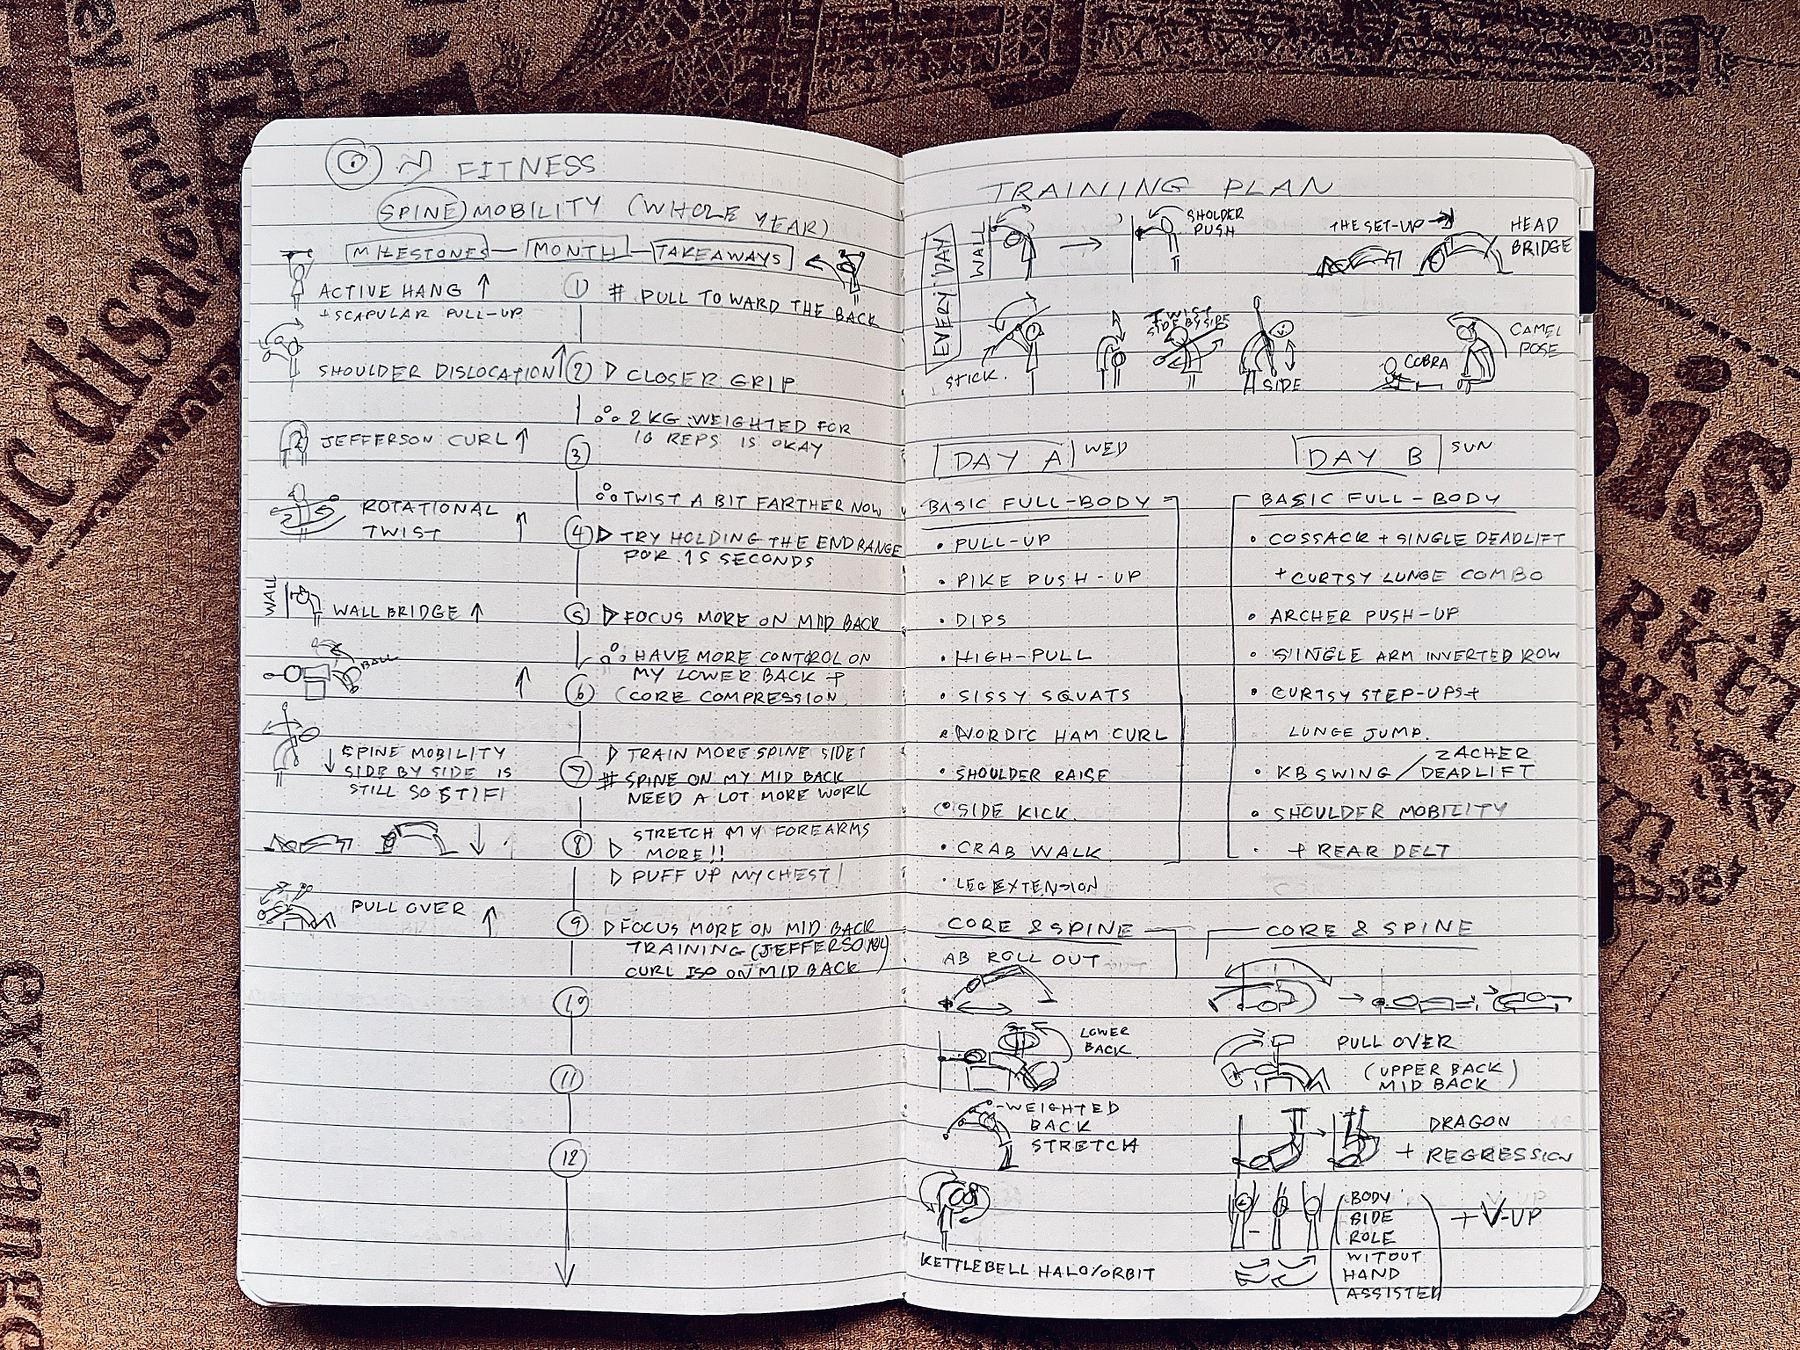 FITNESS
SPINE MOBILITY (WHOLE YEAR)
MILESTONES — MONTH — TAKEAWAYS
ACTIVE HANG ↑
+ SCAPULAR PULL-UP
1 # PULL TOWARD THE BACK
SHOULDER DISLOCATION ↑ 2 ▷ CLOSER GRIP
2 KG WEIGHTED FOR
10 REPS IS OKAY
JEFFERSON CURL ↑ 3
TWIST A BIT FARTHER NOW
ROTATIONAL
TWIST ↑
4 ▷ TRY HOLDING THE END RANGE
FOR 15 SECONDS
WALL
WALL BRIDGE ↑ 5 ▷ FOCUS MORE ON MID BACK
BALL
HAVE MORE CONTROL ON
MY LOWER BACK +
↑ 6 (CORE COMPRESSION
↓ SPINE MOBILITY
SIDE BY SIDE IS
STILL SO STIFF
▷ TRAIN MORE SPINE SIDE!
7 # SPINE ON MY MID BACK
NEED A LOT MORE WORK
↓ 8 ▷ STRETCH MY FOREARMS
MORE!!
▷ PUFF UP MY CHEST!
PULL OVER ↑ 9 ▷ FOCUS MORE ON MID BACK
TRAINING (JEFFERSON
CURL ISO ON MID BACK)
10
11
12
TRAINING PLAN
EVERY DAY
WALL
→ SHOLDER
PUSH
THE SET-UP
HEAD
BRIDGE
STICK
TWIST
SIDE BY SIDE
SIDE
COBRA
CAMEL
POSE
DAY A WED
BASIC FULL-BODY
• PULL-UP
• PIKE PUSH-UP
• DIPS
• HIGH-PULL
• SISSY SQUATS
• NORDIC HAM CURL
• SHOULDER RAISE
• SIDE KICK
• CRAB WALK
• LEG EXTENSION
CORE & SPINE
AB ROLL OUT
LOWER
BACK
WEIGHTED
BACK
STRETCH
KETTLEBELL HALO/ORBIT
DAY B SUN
BASIC FULL-BODY
• COSSACK + SINGLE DEADLIFT
+ CURTSY LUNGE COMBO
• ARCHER PUSH-UP
• SINGLE ARM INVERTED ROW
• CURTSY STEP-UPS +
LUNGE JUMP.
• KB SWING / ZACHER
DEADLIFT
• SHOULDER MOBILITY
+ REAR DELT
CORE & SPINE
PULL OVER
(UPPER BACK
MID BACK)
DRAGON
+ REGRESSION
(BODY
SIDE
ROLE
WITOUT
HAND
ASSISTED)
+ V-UP